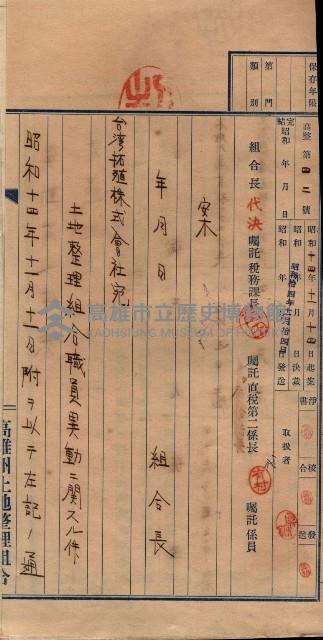 保存年限
第 門
類 別
高整 第 四二 號
昭和十四年十一月十四日起案
淨書
校合
發送
完結 昭和 年 月 日
昭和 年 月 日決裁
昭和拾四年十一月拾四日發送
取扱者
組合長 代決 囑託稅務課長 囑託直稅第二係長 囑託係員
案
年 月 日 組合長
台湾拓殖株式會社宛
土地整理組合職員異動ニ関スル件
昭和十四年十一月一日附ヲ以テ左記ノ通
高雄州土地整理組合
高雄市立歷史博物館
KAOHSIUNG MUSEUM OF HISTORY